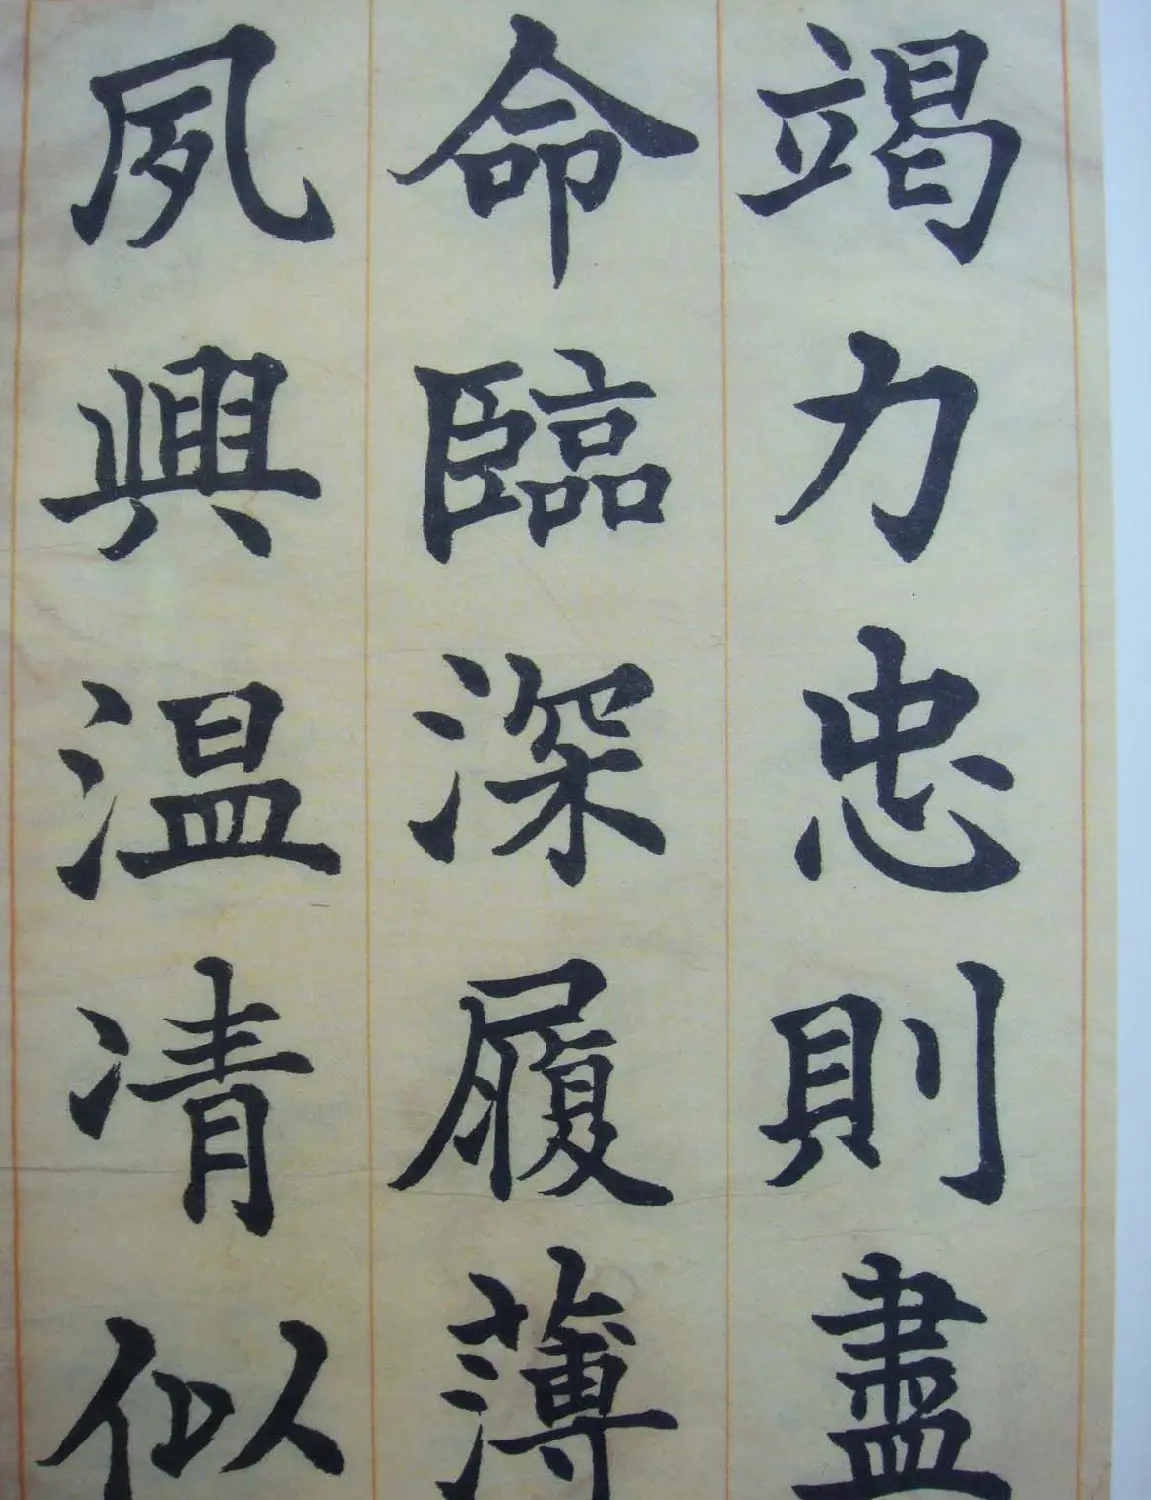 竭力忠則盡
命臨深履薄
夙興温凊似